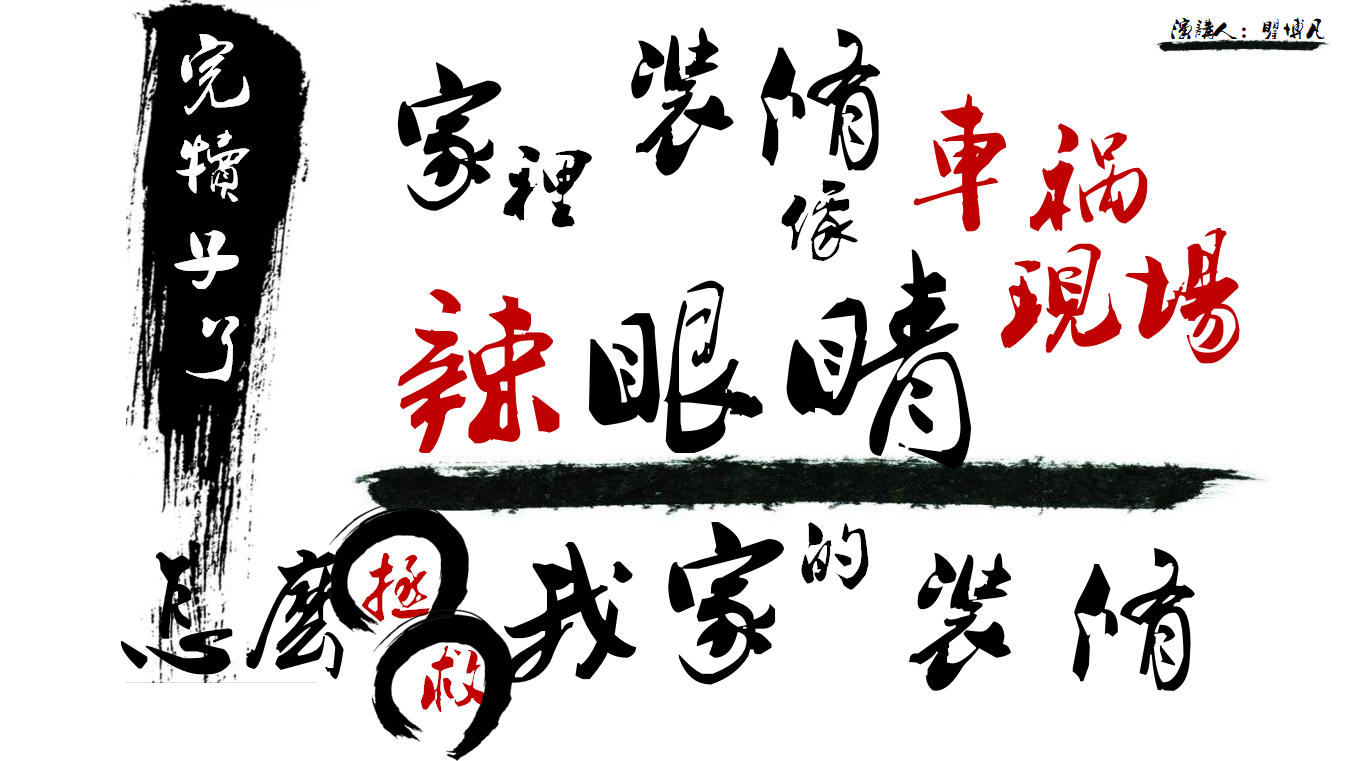 演講人：瞿博凡
完犢子了
家裡裝脩像車祸現場
辣眼睛
怎麼拯救我家的裝脩